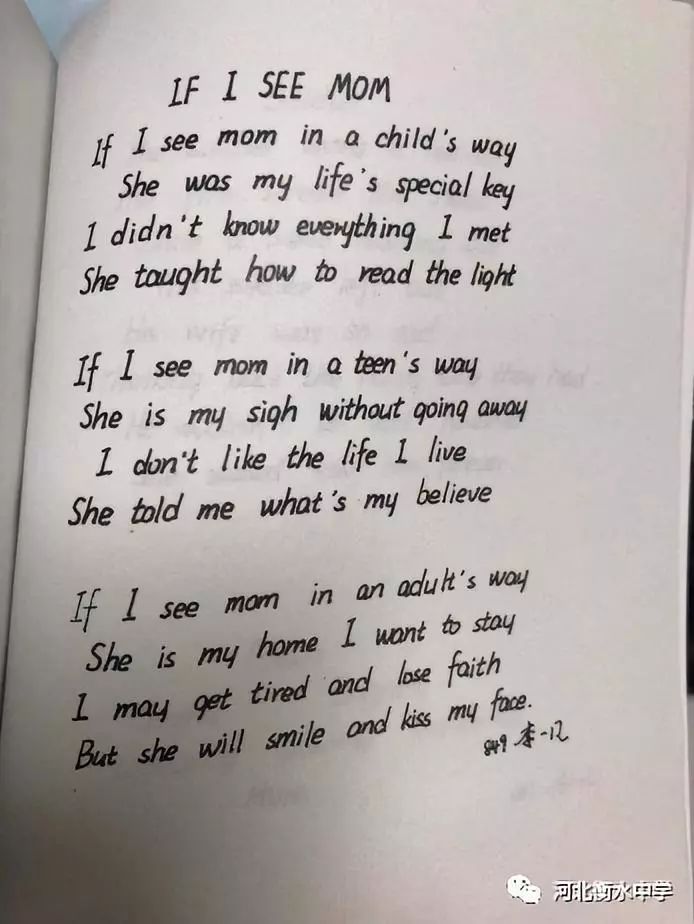 IF I SEE MOM
If I see mom in a child's way
She was my life's special key
I didn't know everything I met
She taught how to read the light
If I see mom in a teen's way
She is my sigh without going away
I don't like the life I live
She told me what's my believe
If I see mom in an adult's way
She is my home I want to stay
I may get tired and lose faith
But she will smile and kiss my face.
849 李一
河北衡水中学